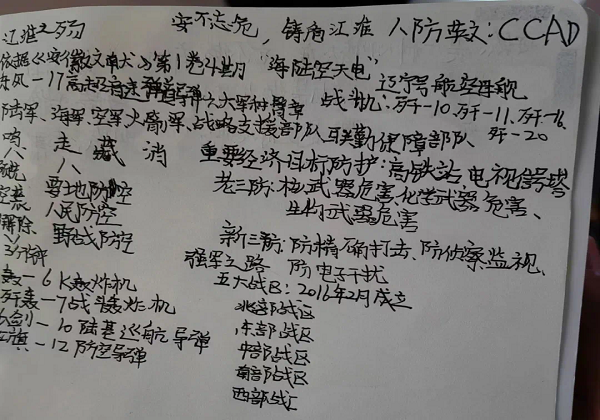 江淮之列
安不忘危，铸盾江淮 人防英文：CCAD
依据《安徽文献》第1卷4月 "海陆空天电"
东风-17高超音速弹道导弹 六大军种臂章
辽宁号航空母舰
战斗机：歼-10.歼-11.歼-16、歼-20
陆军、海军、空军、火箭军、战略支援部队、联勤保障部队
鸣 走 藏 消
重要经济目标防护：高铁站 电视信号塔
老三防：核武器危害、化学武器危害、
生物武器危害
要地防空
人民防空
野战防空
解除
3分钟
新三防：防精确打击、防侦察监视、
防电子干扰
强军之路
五大战区：2016年2月成立
北部战区
东部战区
中部战区
南部战区
西部战区
轰-6K轰炸机
歼轰-7战斗轰炸机
剑-10陆基巡航导弹
红旗-12防空导弹